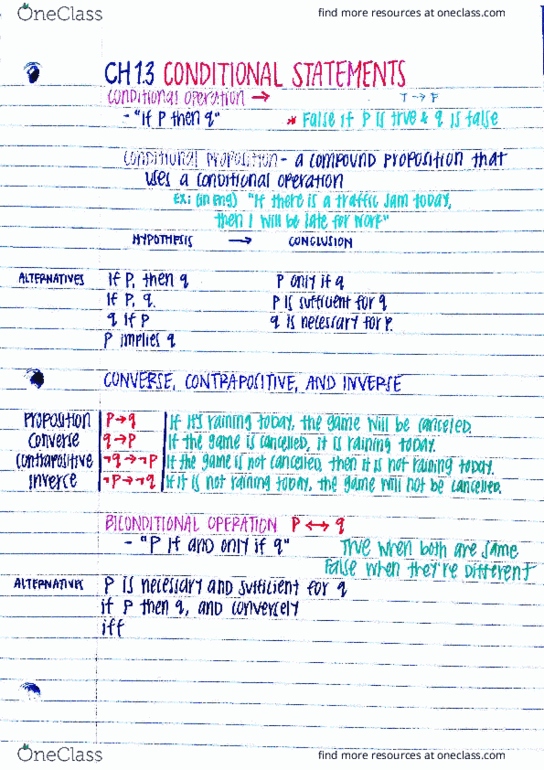 OneClass
find more resources at oneclass.com
CH 1.3 CONDITIONAL STATEMENTS
Conditional operation →
T → F
- "If P then q"
* False if P is true & q is false
Conditional Proposition - a compound proposition that
uses a conditional operation
Ex: (in eng) "If there is a traffic jam today,
then I will be late for work"
HYPOTHESIS → CONCLUSION
ALTERNATIVES
If P, then q
P only if q
If P, q.
P is sufficient for q
q if P
q is necessary for P.
P implies q
CONVERSE, CONTRAPOSITIVE, AND INVERSE
Proposition P→q If it's raining today, the game will be canceled.
Converse q→P If the game is cancelled, it is raining today.
Contrapositive ¬q→¬P If the game is not cancelled, then it is not raining today.
Inverse ¬P→¬q If it is not raining today, the game will not be cancelled.
BICONDITIONAL OPERATION P ↔ q
- "P if and only if q"
True when both are same
False when they're different
ALTERNATIVES
P is necessary and sufficient for q
if P then q, and conversely
iff
OneClass
find more resources at oneclass.com